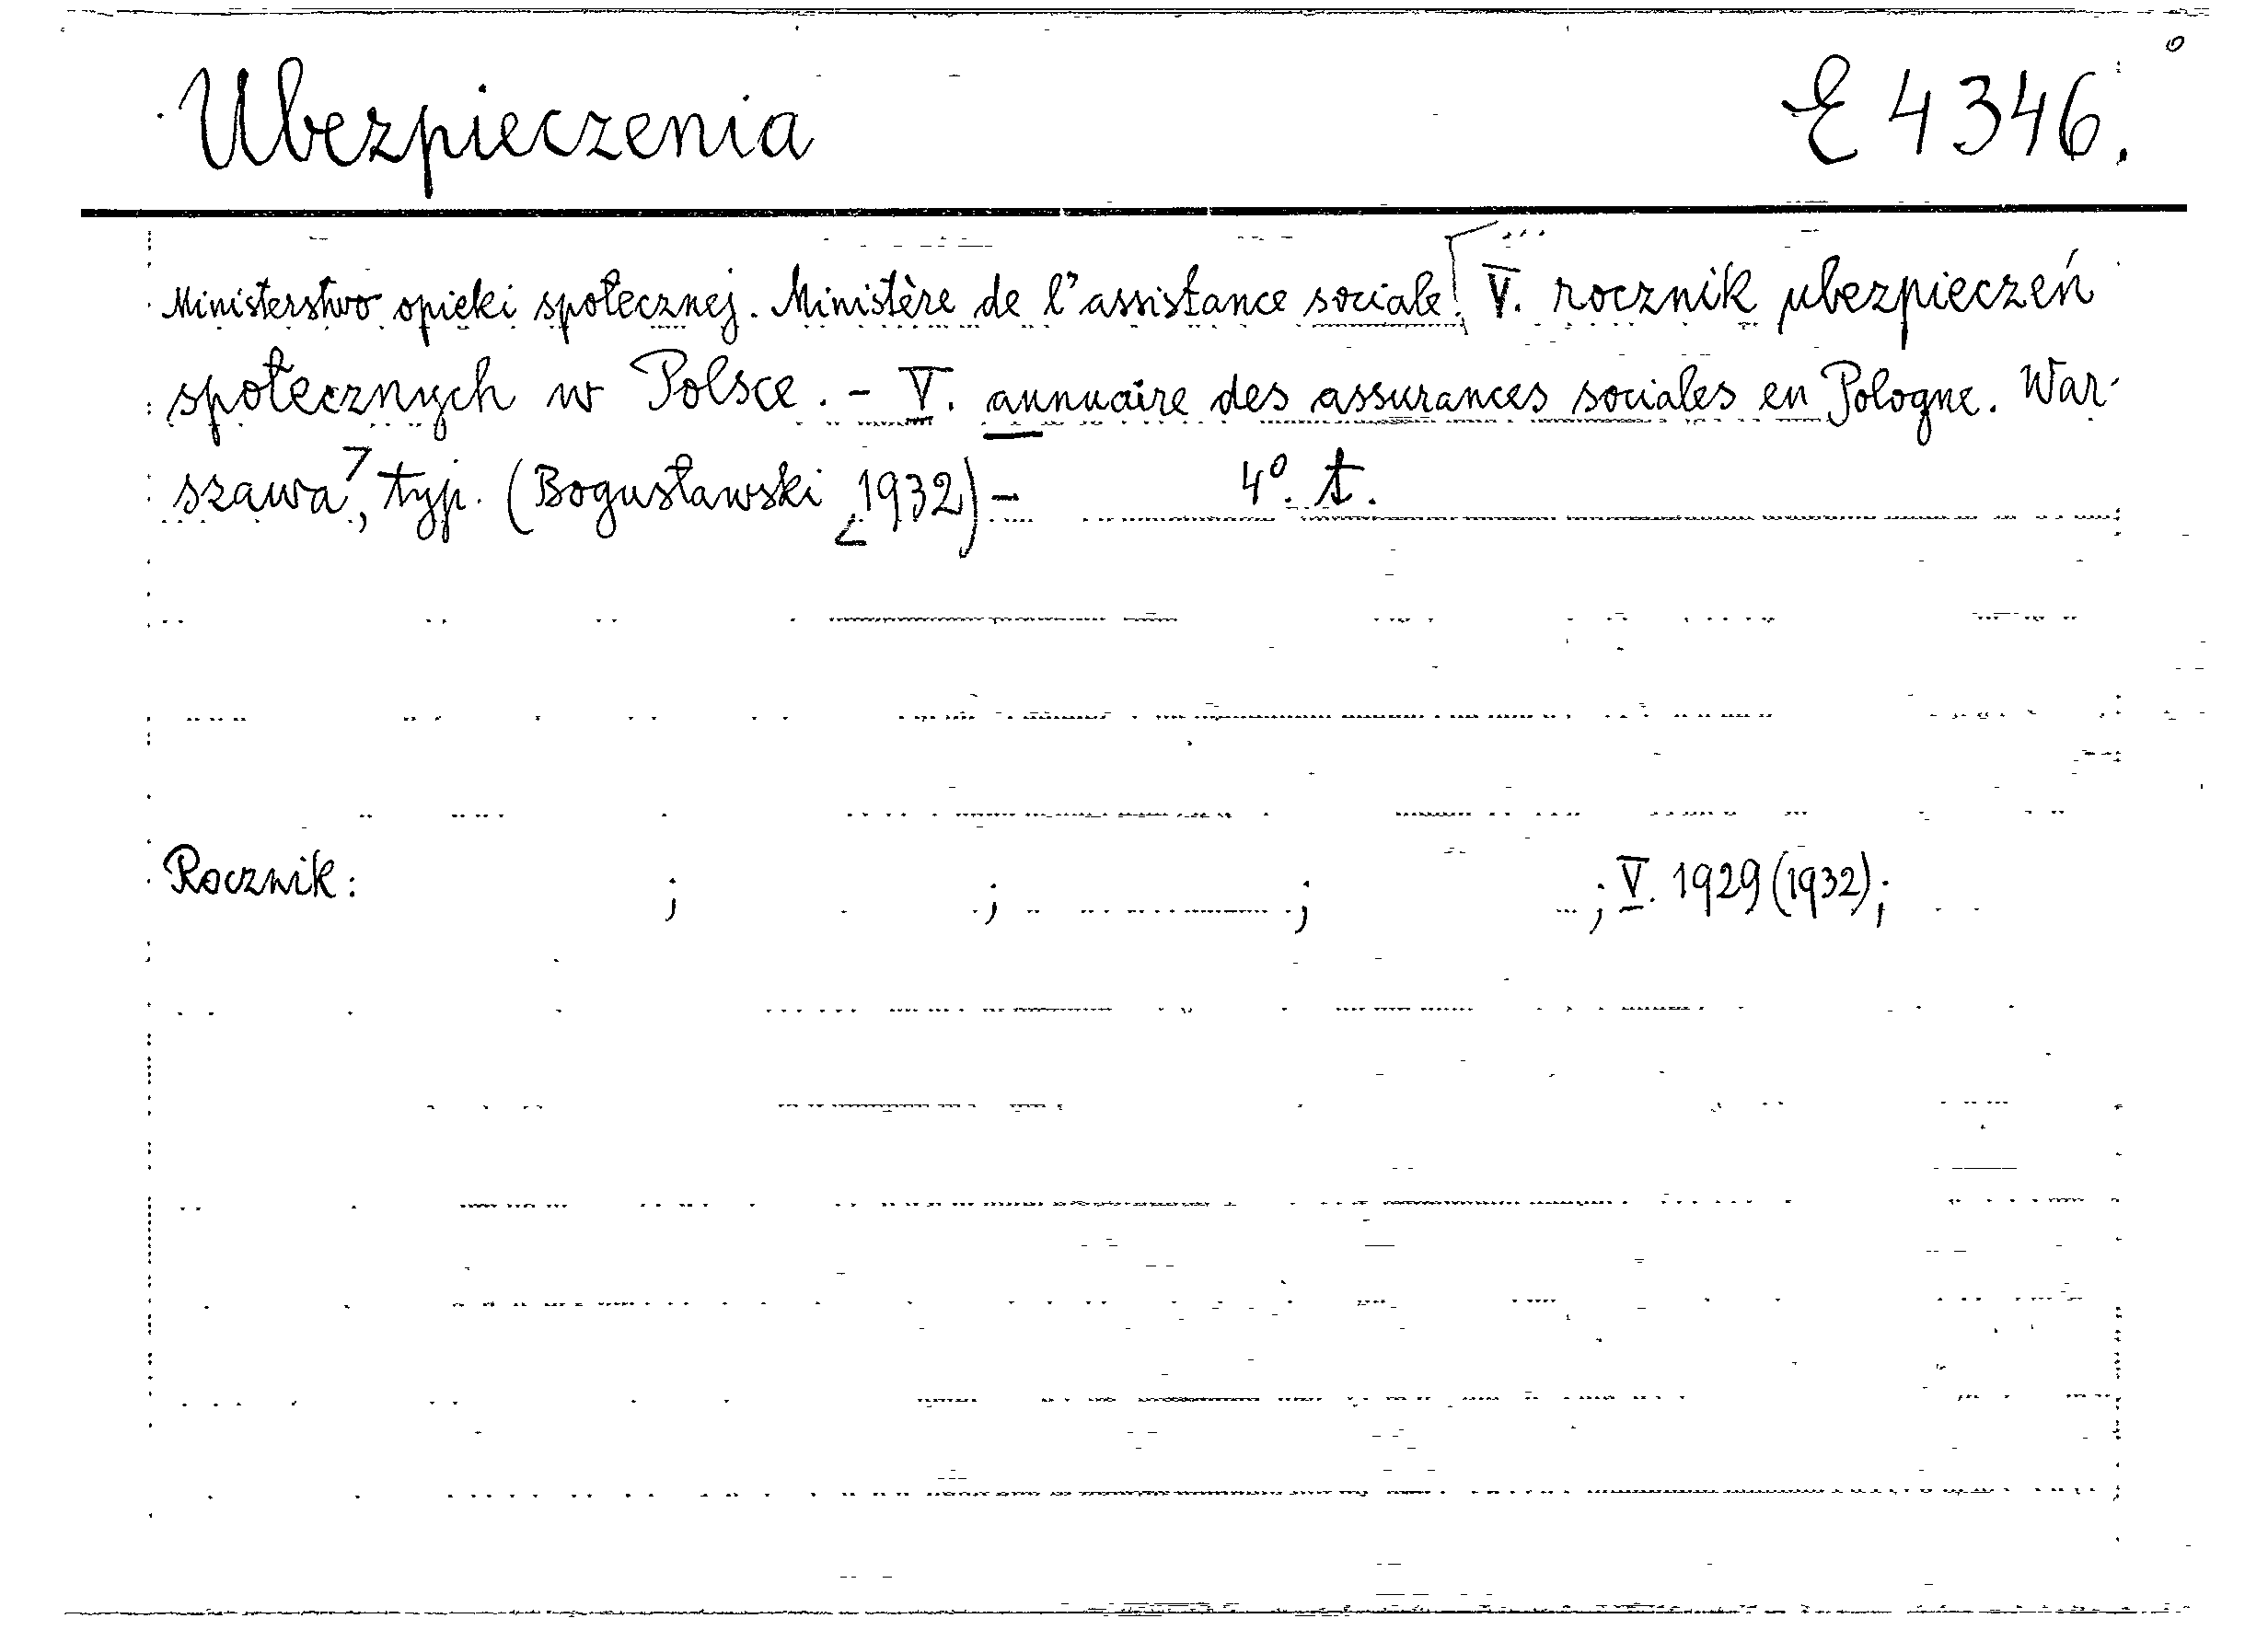 Ubezpieczenia E 4346.
Ministerstwo opieki społecznej. Ministère de l'assistance sociale. V. rocznik ubezpieczeń
społecznych w Polsce. - V. annuaire des assurances sociales en Pologne. War-
szawa, typ. (Bogusławski 1932) - 4⁰. t.
Rocznik: ; ; ; ; V. 1929 (1932);